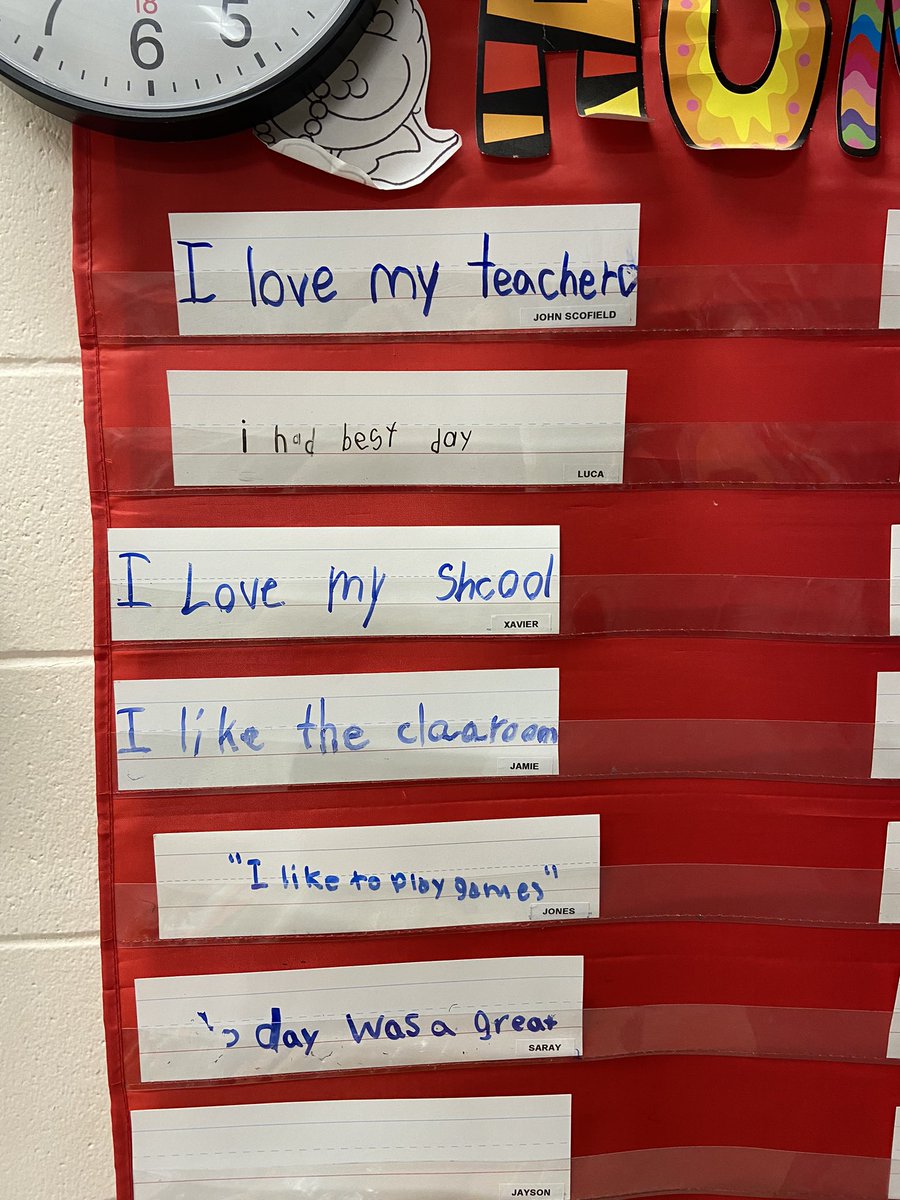 18
6
5
HOM
I love my teacher
JOHN SCOFIELD
i had best day
LUCA
I Love my Shcool
XAVIER
I like the claaroom
JAMIE
"I like to play games"
JONES
day was a great
SARAY
JAYSON